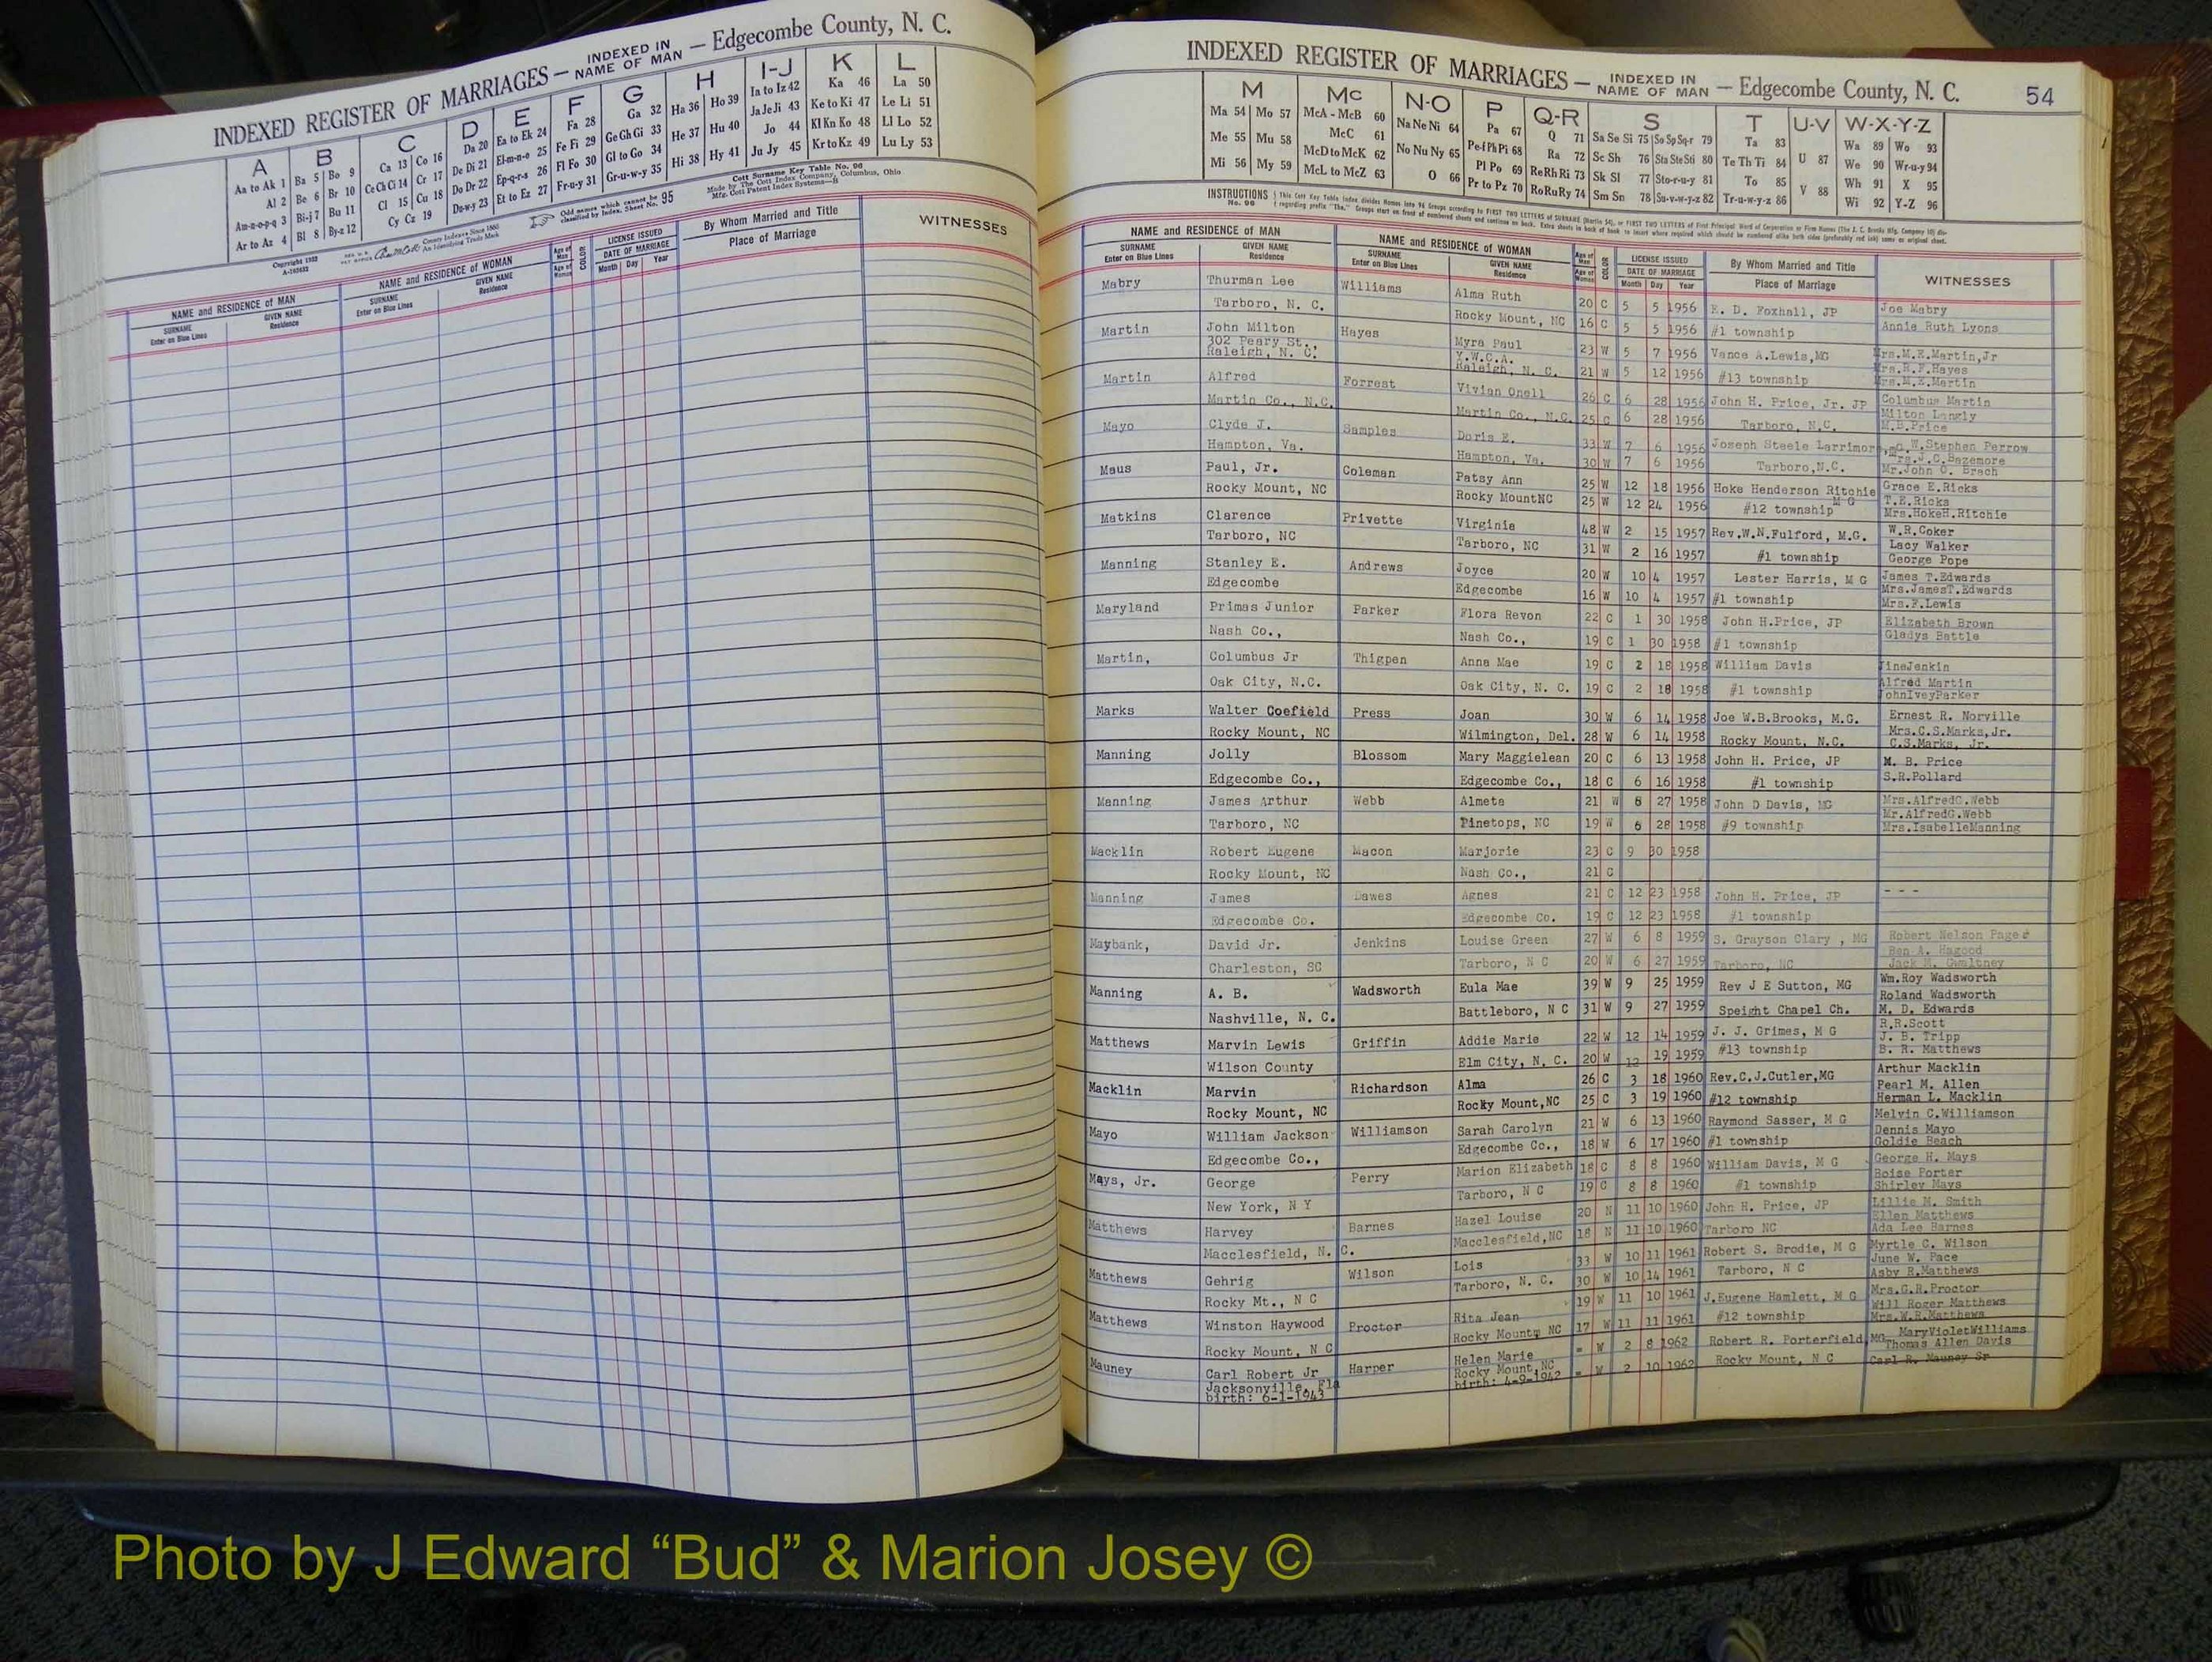 INDEXED REGISTER OF MARRIAGES — INDEXED IN NAME OF MAN — Edgecombe County, N. C.
A B C D E F G H I-J K L
Aa to Ak 1 Ba 5 Bo 9 Ca 13 Co 16 Da 20 Ea to Ek 24 Fa 28 Ga 32 Ha 36 Ho 39 Ia to Iz 42 Ka 46 La 50
Al 2 Be 6 Br 10 Ce Ch Ci 14 Cr 17 De Di 21 El-m-n-o 25 Fe Fi 29 Ge Gh Gi 33 He 37 Hu 40 Ja Je Ji 43 Ke to Ki 47 Le Li 51
Am-n-o-p-q 3 Bi-j 7 Bu 11 Cl 15 Cu 18 Do Dr 22 Ep-q-r-s 26 Fl Fo 30 Gl to Go 34 Hi 38 Hy 41 Jo 44 Kl Kn Ko 48 Ll Lo 52
Ar to Az 4 Bl 8 By-z 12 Cy Cz 19 Du-w-y 23 Et to Ez 27 Fr-u-y 31 Gr-u-w-y 35 Ju Jy 45 Kr to Kz 49 Lu Ly 53
Odd names which cannot be classified by Index, Sheet No. 95
Cott Surname Key Table No. 96
Made by The Cott Index Company, Columbus, Ohio
Mfg. Cott Patent Index Systems—B
NAME and RESIDENCE of MAN
SURNAME Enter on Blue Lines
GIVEN NAME Residence
NAME and RESIDENCE OF WOMAN
SURNAME Enter on Blue Lines
GIVEN NAME Residence
Age of Man Age of Woman
COLOR
LICENSE ISSUED
DATE OF MARRIAGE
Month Day Year
By Whom Married and Title
Place of Marriage
WITNESSES
INDEXED REGISTER OF MARRIAGES — INDEXED IN NAME OF MAN — Edgecombe County, N. C. 54
M Mc N-O P Q-R S T U-V W-X-Y-Z
Ma 54 Mo 57 McA - McB 60 Na Ne Ni 64 Pa 67 Q 71 Sa Se Si 75 So Sp Sq-r 79 Ta 83 Wa 89 Wo 93
Me 55 Mu 58 McC 61 No Nu Ny 65 Pe-f Ph Pi 68 Ra 72 Sc Sh 76 Sta Ste Sti 80 Te Th Ti 84 U 87 We 90 Wr-u-y 94
Mi 56 My 59 McD to McK 62 O 66 Pl Po 69 Re Rh Ri 73 Sk Sl 77 Sto-r-u-y 81 To 85 V 88 Wh 91 X 95
McL to McZ 63 Pr to Pz 70 Ro Ru Ry 74 Sm Sn 78 Su-v-w-y-z 82 Tr-u-w-y-z 86 Wi 92 Y-Z 96
NAME and RESIDENCE OF MAN
SURNAME Enter on Blue Lines
GIVEN NAME Residence
NAME and RESIDENCE OF WOMAN
SURNAME Enter on Blue Lines
GIVEN NAME Residence
Age of Man Age of Woman
COLOR
LICENSE ISSUED
DATE OF MARRIAGE
Month Day Year
By Whom Married and Title
Place of Marriage
WITNESSES
Mabry Thurman Lee Williams Alma Ruth 20 C 5 5 1956 E. D. Foxhall, JP Joe Mabry
Tarboro, N. C. Rocky Mount, NC 16 C 5 5 1956 #1 township Annie Ruth Lyons
Martin John Milton Hayes Myra Paul 23 W 5 7 1956 Vance A.Lewis,MG Mrs.M.E.Martin,Jr
302 Peary St., Y.W.C.A. Mrs.R.F.Hayes
Raleigh, N. C. Raleigh, N. C. 21 W 5 12 1956 #13 township Mrs.M.E.Martin
Martin Alfred Forrest Vivian Onell 26 C 6 28 1956 John H. Price, Jr. JP Columbus Martin
Milton Langly
Martin Co., N.C. Martin Co., N.C. 25 C 6 28 1956 Tarboro, N.C. M.B.Price
Mayo Clyde J. Samples Doris E. 33 W 7 6 1956 Joseph Steele Larrimore,MG W.Stephen Perrow
Mrs.J.C.Bazemore
Hampton, Va. Hampton, Va. 30 W 7 6 1956 Tarboro,N.C. Mr.John O. Brach
Maus Paul, Jr. Coleman Patsy Ann 25 W 12 18 1956 Hoke Henderson Ritchie MG Grace E.Ricks
T.E.Ricks
Rocky Mount, NC Rocky MountNC 25 W 12 24 1956 #12 township Mrs.HokeH.Ritchie
Matkins Clarence Privette Virginia 48 W 2 15 1957 Rev.W.N.Fulford, M.G. W.R.Coker
Lacy Walker
Tarboro, NC Tarboro, NC 31 W 2 16 1957 #1 township George Pope
Manning Stanley E. Andrews Joyce 20 W 10 4 1957 Lester Harris, M G James T.Edwards
Mrs.JamesT.Edwards
Edgecombe Edgecombe 16 W 10 4 1957 #1 township Mrs.F.Lewis
Maryland Primas Junior Parker Flora Revon 22 C 1 30 1958 John H.Price, JP Elizabeth Brown
Nash Co., Nash Co., 19 C 1 30 1958 #1 township Gladys Battle
Martin, Columbus Jr Thigpen Anna Mae 19 C 2 18 1958 William Davis JineJenkin
Alfred Martin
Oak City, N.C. Oak City, N. C. 19 C 2 18 1958 #1 township JohnIveyParker
Marks Walter Coefield Press Joan 30 W 6 14 1958 Joe W.B.Brooks, M.G. Ernest R. Norville
Mrs.C.S.Marks,Jr.
Rocky Mount, NC Wilmington, Del. 28 W 6 14 1958 Rocky Mount, N.C. C.S.Marks, Jr.
Manning Jolly Blossom Mary Maggielean 20 C 6 13 1958 John H. Price, JP M. B. Price
Edgecombe Co., Edgecombe Co., 18 C 6 16 1958 #1 township S.R.Pollard
Manning James Arthur Webb Almeta 21 W 6 27 1958 John D Davis, MG Mrs.AlfredC.Webb
Mr.AlfredG.Webb
Tarboro, NC Pinetops, NC 19 W 6 28 1958 #9 township Mrs.IsabelleManning
Macklin Robert Eugene Macon Marjorie 23 C 9 30 1958
Rocky Mount, NC Nash Co., 21 C
Manning James Dawes Agnes 21 C 12 23 1958 John H. Price, JP - - -
Edgecombe Co. Edgecombe Co. 19 C 12 23 1958 #1 township
Maybank, David Jr. Jenkins Louise Green 27 W 6 8 1959 S. Grayson Clary , MG Robert Nelson Page
Ben A. Hagood
Charleston, SC Tarboro, N C 20 W 6 27 1959 Tarboro, NC Jack M. Gwaltney
Manning A. B. Wadsworth Eula Mae 39 W 9 25 1959 Rev J E Sutton, MG Wm.Roy Wadsworth
Roland Wadsworth
Nashville, N. C. Battleboro, N C 31 W 9 27 1959 Speight Chapel Ch. M. D. Edwards
Matthews Marvin Lewis Griffin Addie Marie 22 W 12 14 1959 J. J. Grimes, M G R.R.Scott
J. B. Tripp
Wilson County Elm City, N. C. 20 W 12 19 1959 #13 township B. R. Matthews
Macklin Marvin Richardson Alma 26 C 3 18 1960 Rev.C.J.Cutler,MG Arthur Macklin
Pearl M. Allen
Rocky Mount, NC Rocky Mount,NC 25 C 3 19 1960 #12 township Herman L. Macklin
Mayo William Jackson Williamson Sarah Carolyn 21 W 6 13 1960 Raymond Sasser, M G Melvin C.Williamson
Dennis Mayo
Edgecombe Co., Edgecombe Co., 18 W 6 17 1960 #1 township Goldie Beach
Mays, Jr. George Perry Marion Elizabeth 18 C 8 8 1960 William Davis, M G George H. Mays
Boise Porter
New York, N Y Tarboro, N C 19 C 8 8 1960 #1 township Shirley Mays
Matthews Harvey Barnes Hazel Louise 20 N 11 10 1960 John H. Price, JP Lillie M. Smith
Ellen Matthews
Macclesfield, N. C. Macclesfield,NC 18 N 11 10 1960 Tarboro NC Ada Lee Barnes
Matthews Gehrig Wilson Lois 33 W 10 11 1961 Robert S. Brodie, M G Myrtle C. Wilson
June W. Pace
Rocky Mt., N C Tarboro, N. C. 30 W 10 14 1961 Tarboro, N C Asby R.Matthews
Matthews Winston Haywood Proctor Rita Jean 19 W 11 10 1961 J.Eugene Hamlett, M G Mrs.G.R.Proctor
Will Roger Matthews
Rocky Mount, N C Rocky Mount, NC 17 W 11 11 1961 #12 township Mrs.W.R.Matthews
Mauney Carl Robert Jr Harper Helen Marie - W 2 8 1962 Robert R. Porterfield,MG MaryVioletWilliams
Thomas Allen Davis
Jacksonville, Fla Rocky Mount,NC - W 2 10 1962 Rocky Mount, N C Carl R. Mauney Sr
birth: 6-1-1943 birth: 4-9-1942
Photo by J Edward “Bud” & Marion Josey ©